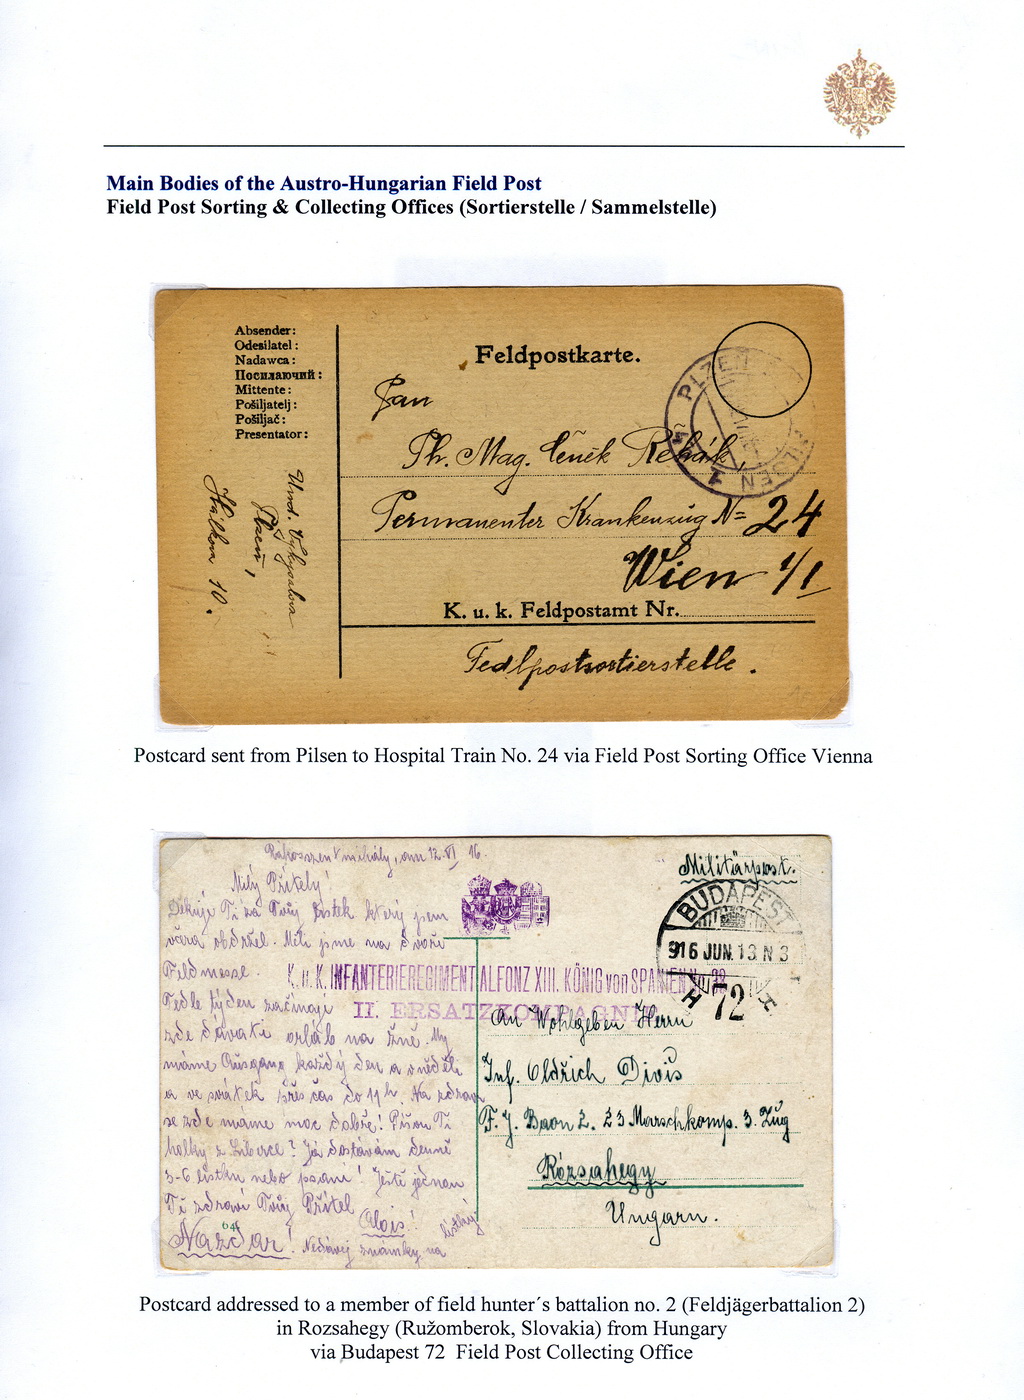 Main Bodies of the Austro-Hungarian Field Post
Field Post Sorting & Collecting Offices (Sortierstelle / Sammelstelle)
Absender:
Odesílatel:
Nadawca:
Посилаючий:
Mittente:
Pošiljatelj:
Pošiljač:
Presentator:
Feldpostkarte.
PLZEŇ 1
PILSEN 1
Pan
Ph. Mag. Čeněk Řehák,
Permanenter Krankenzug No 24
Wien 1/1
K. u. k. Feldpostamt Nr.
Fedlpostsortierstelle.
Plzeň,
Hálkova 10.
Postcard sent from Pilsen to Hospital Train No. 24 via Field Post Sorting Office Vienna
Rákosszentmihály, am 12. VI 16.
Militärpost.
BUDAPEST
916 JUN. 13. N 3
72
Milý Příteli!
Děkuji Ti za Tvůj lístek který jsem
včera obdržel. Měli jsme na dvoře
Feldmesse.
K. u. K. INFANTERIEREGIMENT ALFONZ XIII. KÖNIG von SPANIEN No. 38
II. ERSATZKOMPAGNIE
Tedle týden začínají
zde dávati orláb na žně. My
máme Ausgang každý den a v neděli
a ve svátek přes čas do 11 h. Na zdraví
se zde máme moc dobře! Píšou Ti
holky z Liberce? Já dostávám denně
3-6 lístků nebo psaní! Ještě jednou
Tě zdraví Tvůj Přítel
Alois!
Nazdar! Nedávej známky na
lístky
64
An Wohlgeben Herrn
Inf. Oldřich Diviš
F. J. Baon 2. 23 Marschkomp. 3. Zug
Rózsahegy
Ungarn.
Postcard addressed to a member of field hunter´s battalion no. 2 (Feldjägerbattalion 2)
in Rozsahegy (Ružomberok, Slovakia) from Hungary
via Budapest 72 Field Post Collecting Office